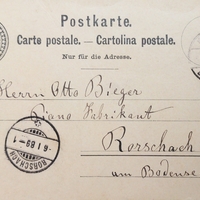 Postkarte.
Carte postale. — Cartolina postale.
Nur für die Adresse.
Herrn Otto Bieger
Piano Fabrikant
Rorschach
am Bodense
RORSCHACH